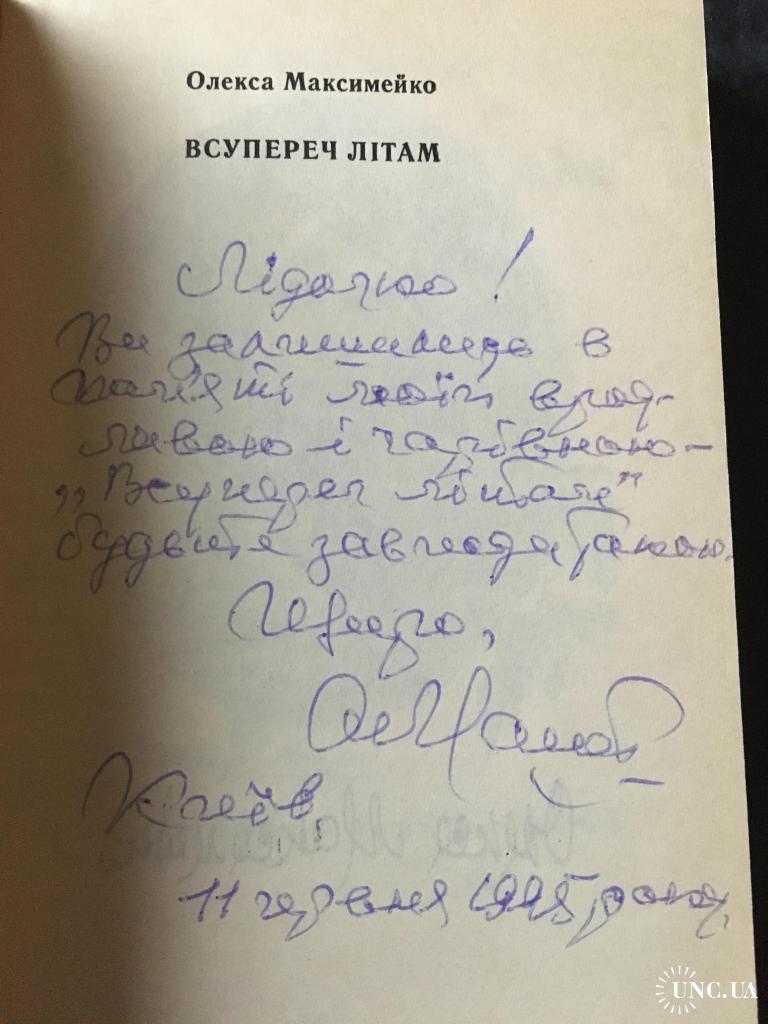 Олекса Максимейко
ВСУПЕРЕЧ ЛІТАМ
Лідочко!
Ви залишились в
пам'яті моїй врод-
ливою і чарівною –
„Всупереч літам"
будьте завжди такою.
Щиро,
Київ,
11 червня 1995 року.
UNC.UA